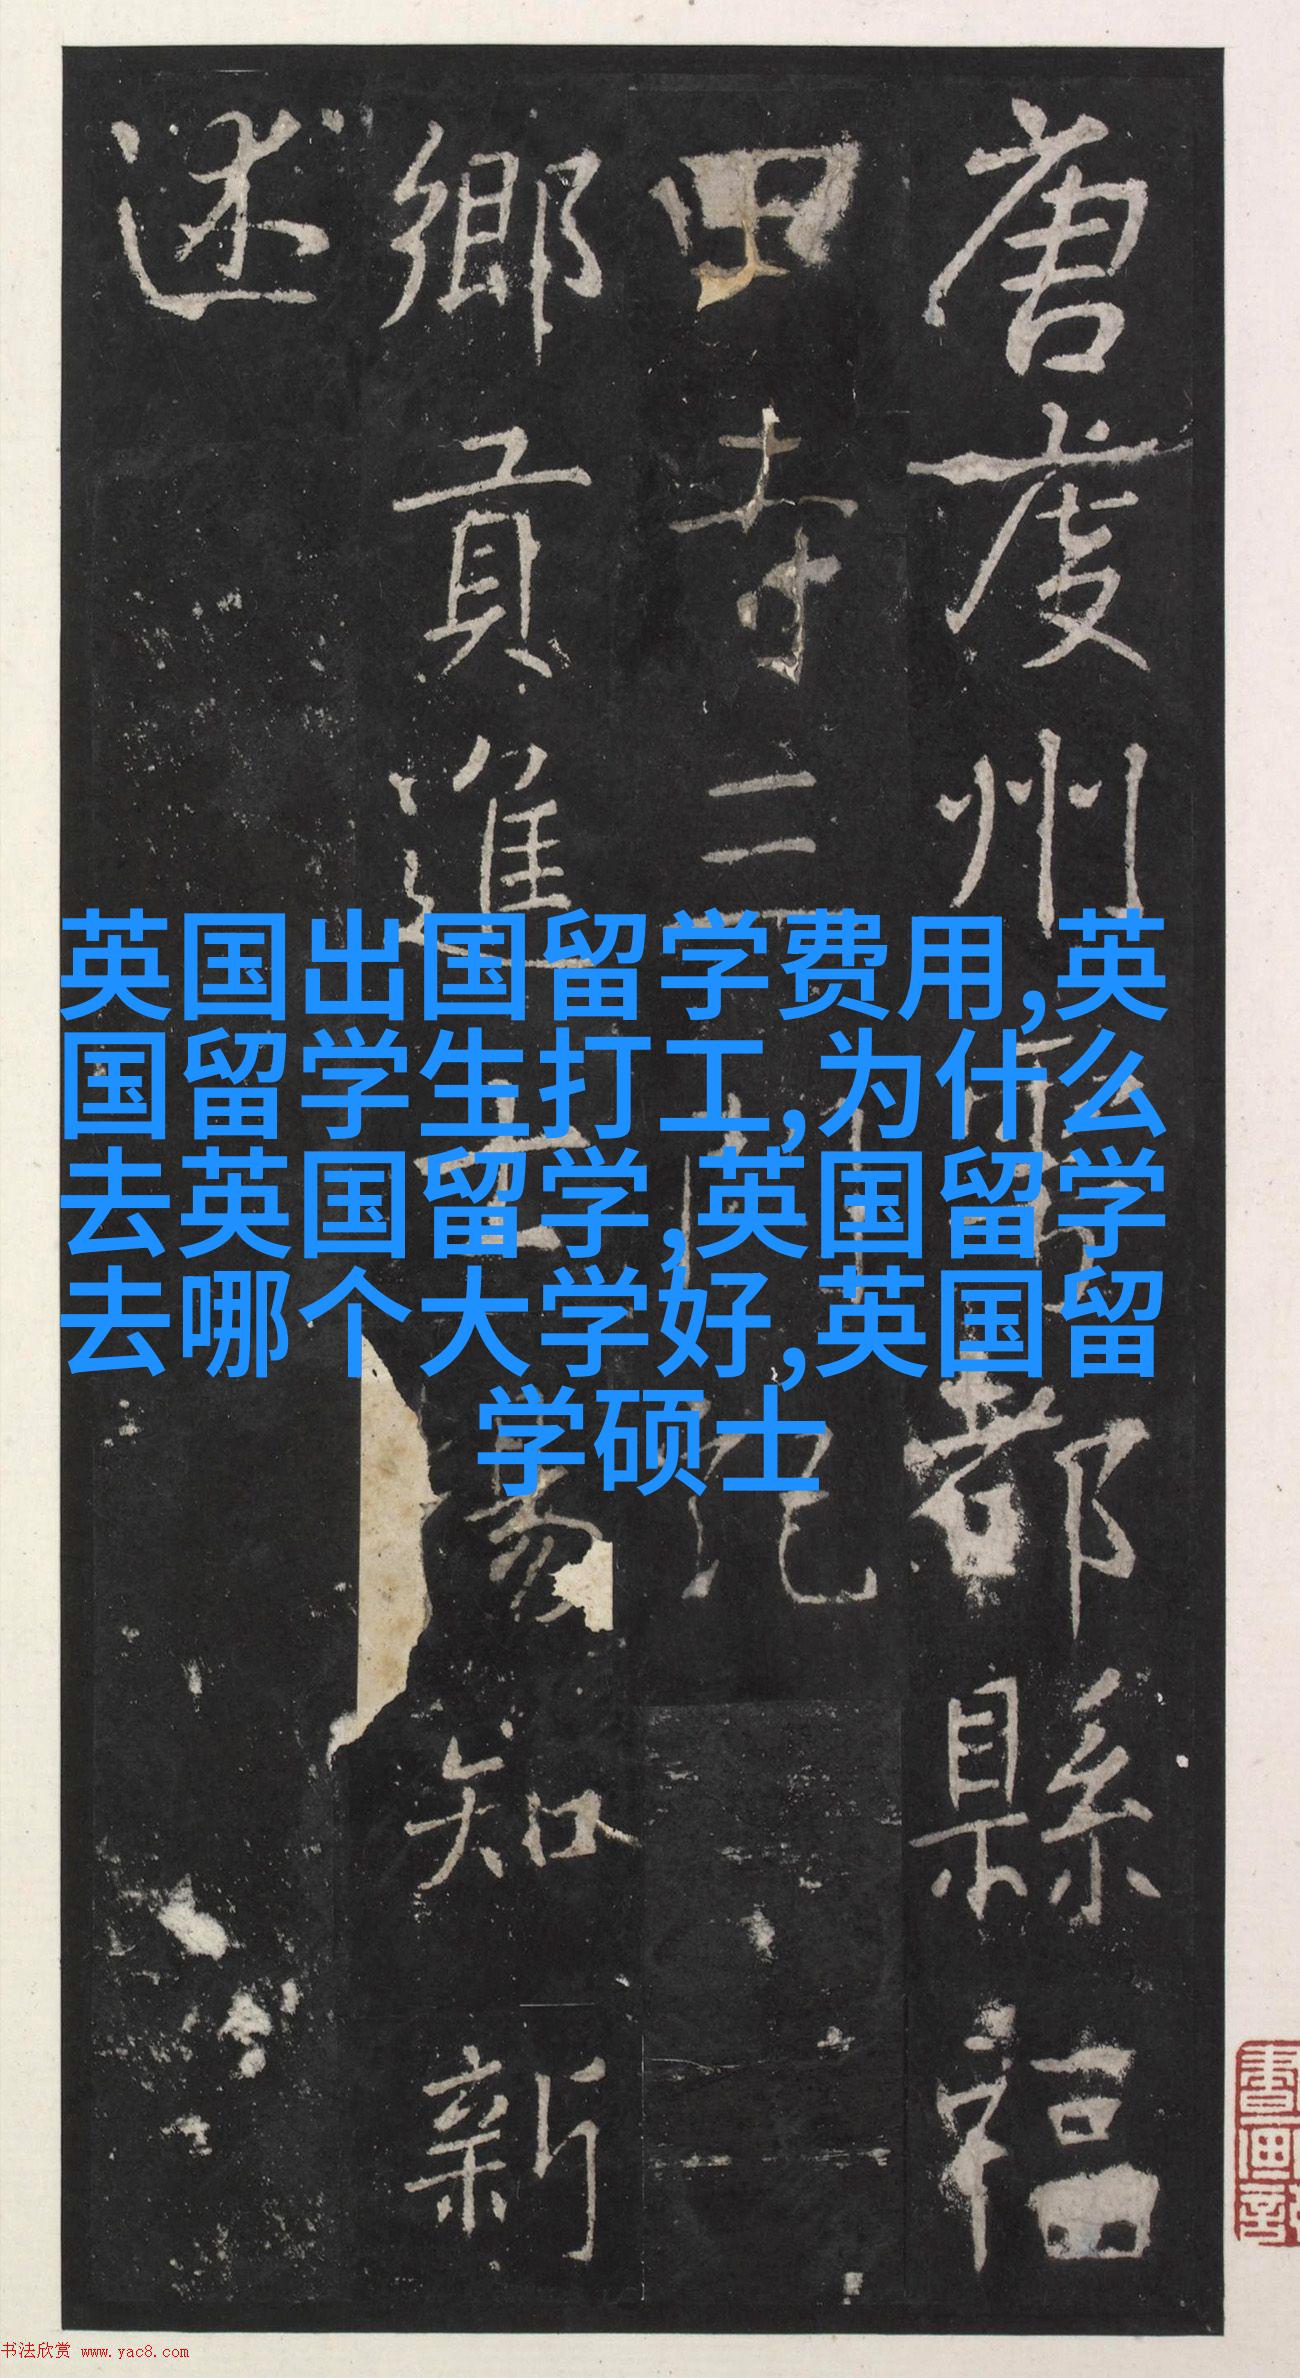 唐虔州
都縣福
田寺三
門記
鄉貢進士
易知新
述
英国出国留学费用,英
国留学生打工,为什么
去英国留学,英国留学
去哪个大学好,英国留
学硕士
書画
书法欣赏 www.yac8.com